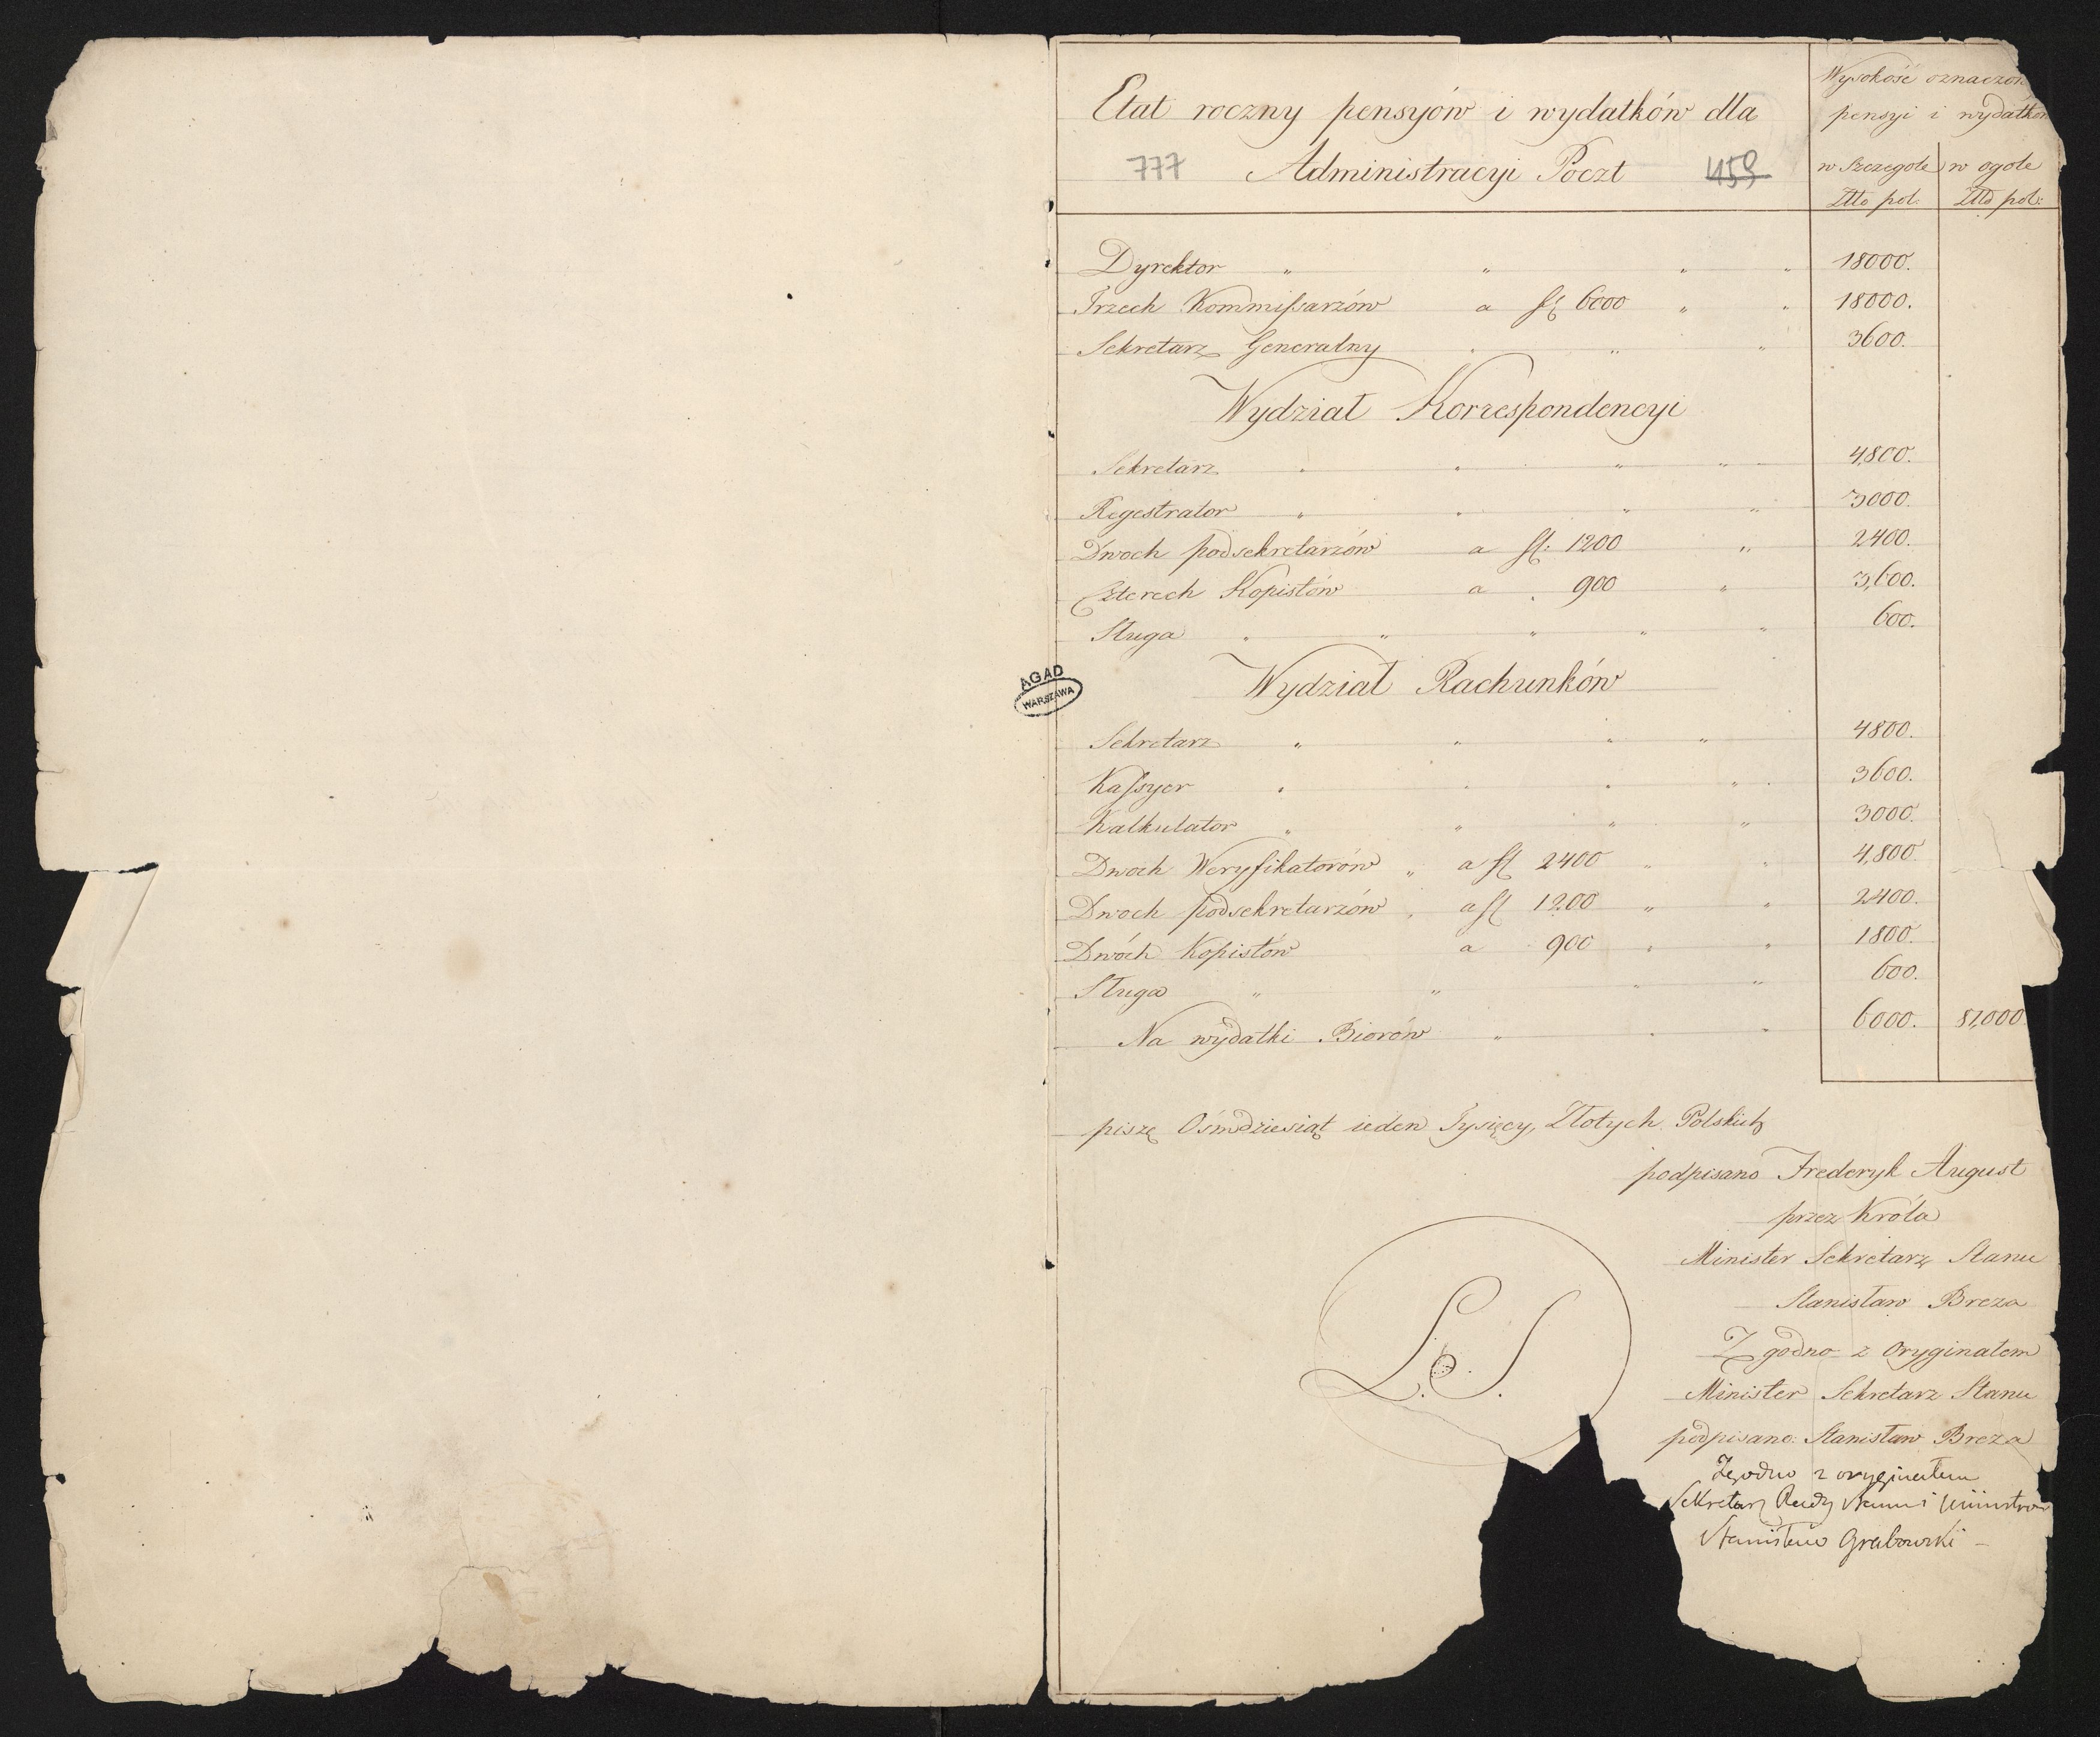 Etat roczny pensyów i wydatków dla
777 Administracyi Poczt 459
Wysokość oznaczon
pensyi i wydatków
w Szczegole w ogole
Złło pol: Złło pol:
Dyrektor " " " " 18000.
Trzech Kommißarzów a fl 6000 " " 18000.
Sekretarz Generalny " " " 3600.
Wydział Korrespondencyi
Sekretarz " " " " 4,800.
Regestrator " " " " 3000.
Dwoch podsekretarzów a fl: 1200 " 2400.
Czterech Kopistów a " 900 " 3,600.
Sługa " " " " " 600.
AGAD
WARSZAWA
Wydział Rachunków
Sekretarz " " " " 4800.
Kaßyer " " " " 3600.
Kalkulator " " " " 3000.
Dwoch Weryfikatorów " a fl 2400 " " 4,800.
Dwoch podsekretarzów " a fl 1200 " " 2400.
Dwóch Kopistów a 900 " " 1800.
Sługa " " " " 600.
Na wydatki Biorów " " " 6000. 81,000
piszę Ośmdziesiąt ieden Tysięcy, Złotych Polskich
podpisano Frederyk August
przez Króla
Minister Sekretarz Stanu
Stanisław Breza
L. S.
Zgodno z Oryginałem
Minister Sekretarz Stanu
podpisano: Stanisław Breza
Zgodno z oryginałem
Sekretarz Rady Stanu i Ministrow
Stanisław Grabowski –